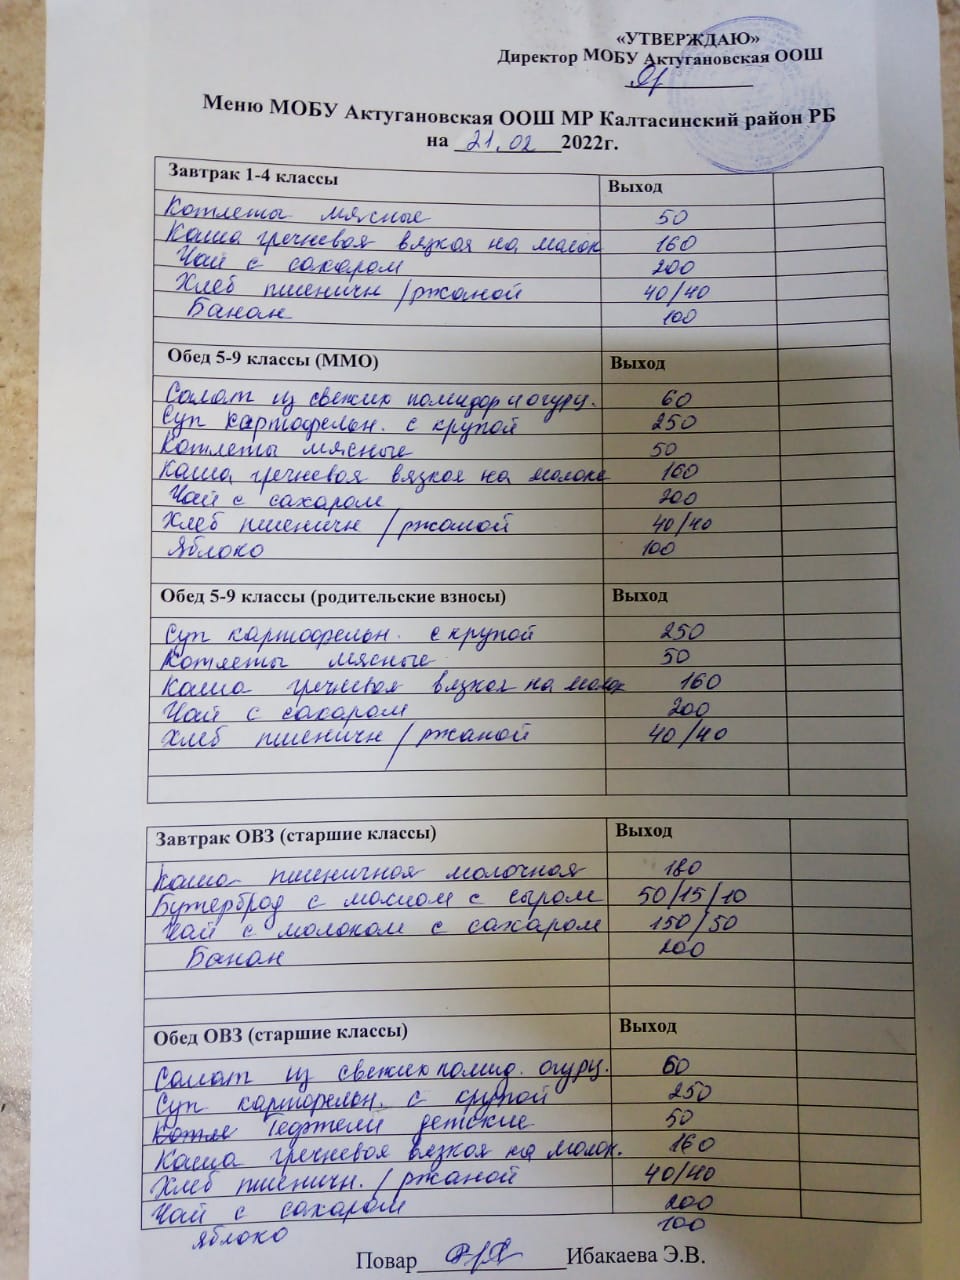 «УТВЕРЖДАЮ»
Директор МОБУ Актугановская ООШ
Меню МОБУ Актугановская ООШ МР Калтасинский район РБ
на 21.02 2022г.
Завтрак 1-4 классы Выход
Котлеты мясные 50
Каша гречневая вязкая на молок 160
Чай с сахаром 200
Хлеб пшеничн / ржаной 40/40
Банан 100
Обед 5-9 классы (ММО) Выход
Салат из свежих помидор и огурц. 60
Суп картофельн. с крупой 250
Котлеты мясные 50
Каша гречневая вязкая на молоке 160
Чай с сахаром 200
Хлеб пшеничн / ржаной 40/40
Яблоко 100
Обед 5-9 классы (родительские взносы) Выход
Суп картофельн. с крупой 250
Котлеты мясные 50
Каша гречневая вязкая на молок 160
Чай с сахаром 200
Хлеб пшеничн / ржаной 40/40
Завтрак ОВЗ (старшие классы) Выход
Каша пшеничная молочная 180
Бутерброд с маслом с сыром 50/15/10
Чай с молоком с сахаром 150/50
Банан 200
Обед ОВЗ (старшие классы) Выход
Салат из свежих помид. огурц. 60
Суп картофельн. с крупой 250
Котле Тефтели детские 50
Каша гречневая вязкая на молок. 160
Хлеб пшеничн. / ржаной 40/40
Чай с сахаром 200
яблоко 100
Повар Ибакаева Э.В.